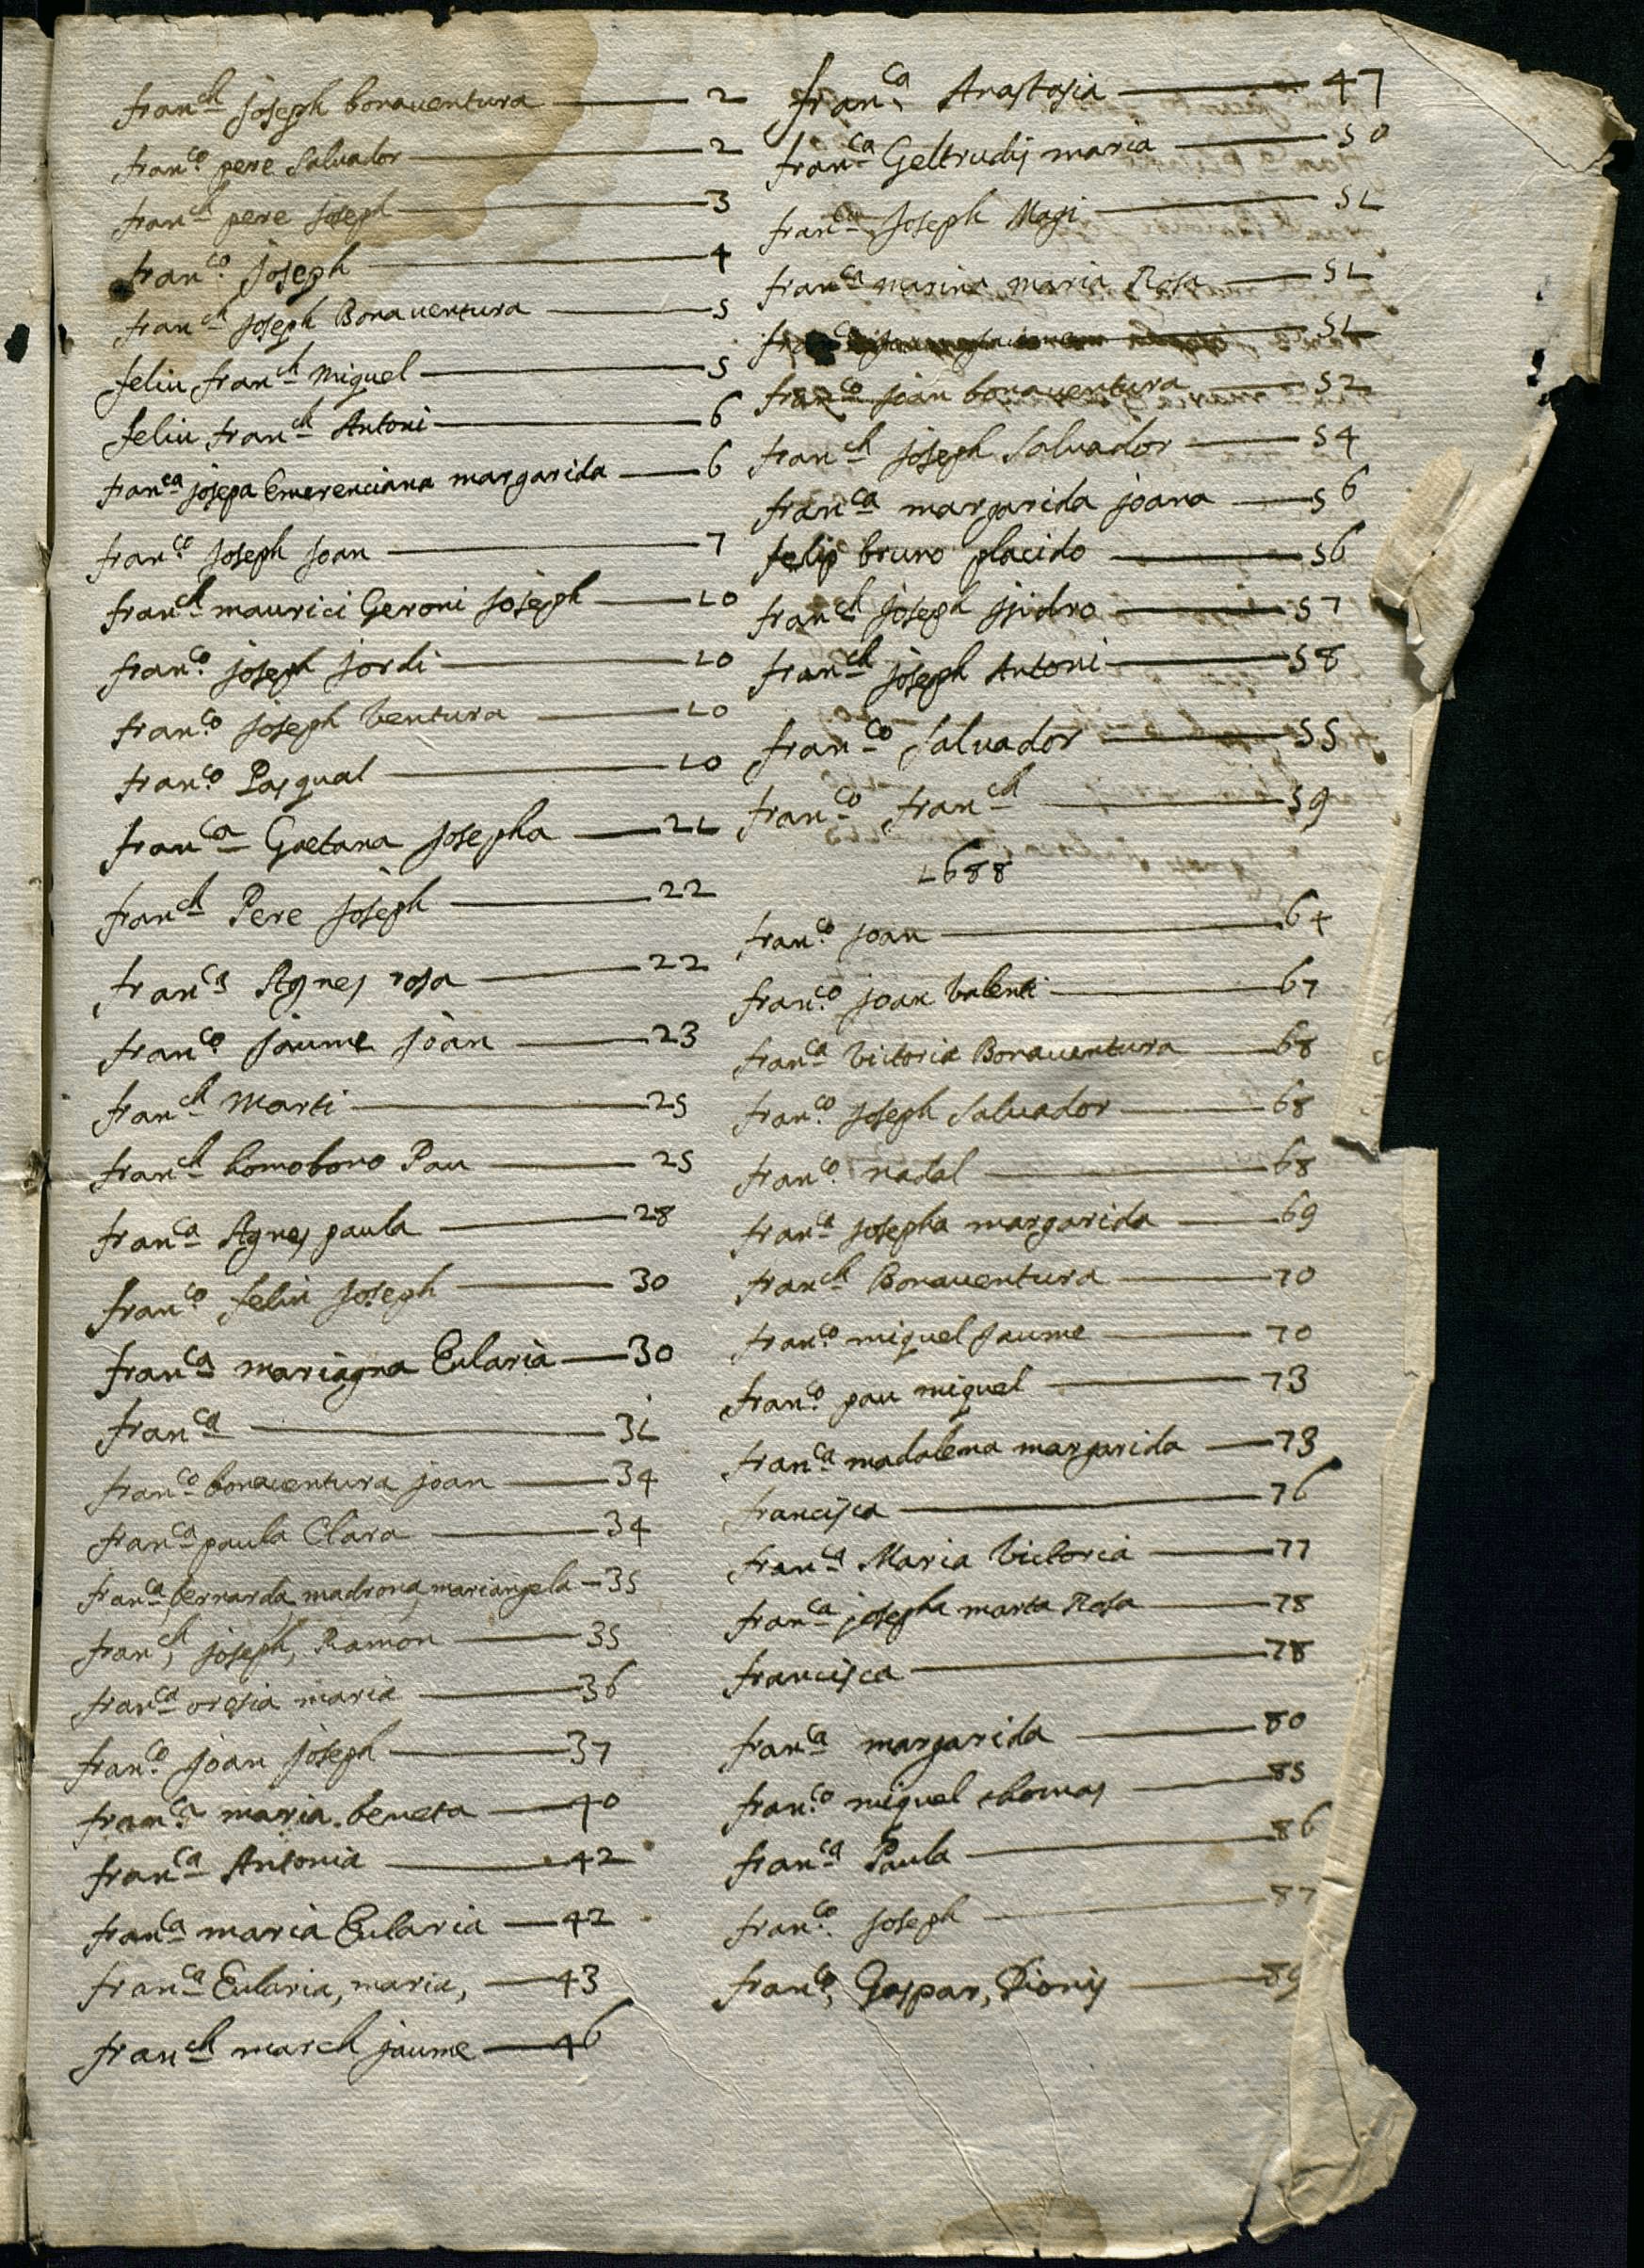 franch joseph bonauentura — 2
franco pere Saluador — 2
franch pere joseph — 3
franco joseph — 4
franch joseph Bonauentura — 5
feliu franch Miquel — 5
feliu franch Antoni — 6
franca josepa Emerenciana margarida — 6
franco joseph joan — 7
franch maurici Geroni joseph — 10
franco joseph jordi — 10
franco joseph ventura — 10
franco Pasqual — 10
franca Gaetana josepha — 21
franch Pere joseph — 22
franca Agnes rosa — 22
franco jaume joan — 23
franch Marti — 25
franch homobono Pau — 25
franca Agnes paula — 28
franco feliu joseph — 30
franca mariagna Eularia — 30
franca — 31
franco bonauentura joan — 34
franca paula Clara — 34
franca, bernarda, madrona, mariangela — 35
franch, joseph, Ramon — 35
franca oresia maria — 36
franco joan joseph — 37
franca maria beneta — 40
franca Antonia — 42
franca maria Eularia — 42
franca Eularia, maria, — 43
franch march jaume — 46
franca Anastasia — 47
franca Geltrudis maria — 50
joseph Magi — 51
franca marina maria Rosa — 51
51
franco joan bonauentura — 52
franch joseph Saluador — 54
franca margarida joana — 56
felip bruno placido — 56
franch joseph jsidro — 57
franch joseph Antoni — 58
franco Saluador — 55
franco franch — 59
1688
franco joan — 64
franco joan valenti — 67
franca victoria Bonauentura — 68
franco joseph Saluador — 68
franco nadal — 68
franca josepha margarida — 69
franch Bonauentura — 70
franco miquel jaume — 70
franco pau miquel — 73
franca madalena margarida — 73
francisca — 76
franca Maria victoria — 77
franca josepha marta Rosa — 78
francisca — 78
franca margarida — 80
franco miquel thomas — 85
franca Paula — 86
franco joseph — 87
franco, Gaspar, Dionis — 89